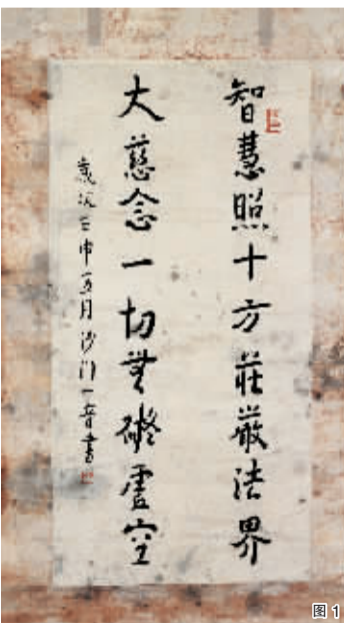 智慧照十方莊嚴法界
大慈念一切無礙虛空
歲次壬申五月沙門一音書
图1